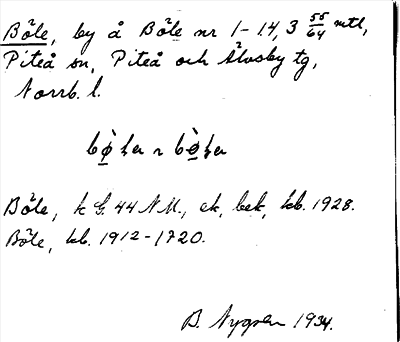 Böle, by å Böle nr 1-14, 3 55/64 mtl,
Piteå sn, Piteå och Älvsby tg,
Norrb. l.
Böle, k G. 44 NM., ek, bek, kb. 1928.
Böle, kb. 1912-1720.
B. Nygren 1934.